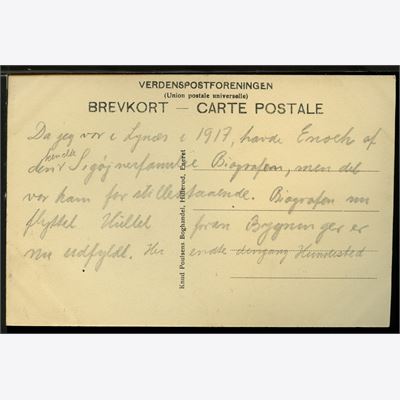 VERDENSPOSTFORENINGEN
(Union postale universelle)
BREVKORT — CARTE POSTALE
Da jeg var i Lynæs i 1917, havde Enoch af
den kendte Sigøjnerfamilie Biografen, men det
var kun for stillestaaende. Biografen nu
flyttet Hullet foran Bygningen er
nu udfyldt. Her endte dengang Hundested
Knud Poulsens Boghandel, Hillerød, Eneret